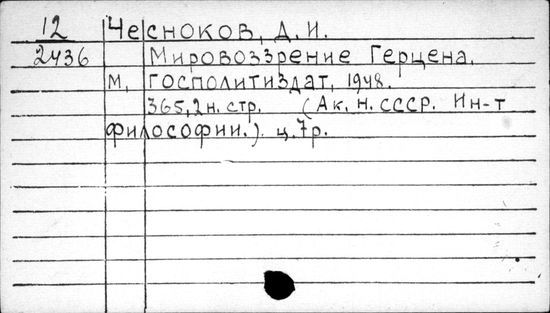 12 Чесноков, Д.И.
2436 Мировоззрение Герцена.
М, Госполитиздат, 1948.
365,2н. стр. (Ак. н. СССР. Ин-т
философии.) ц. 7р.